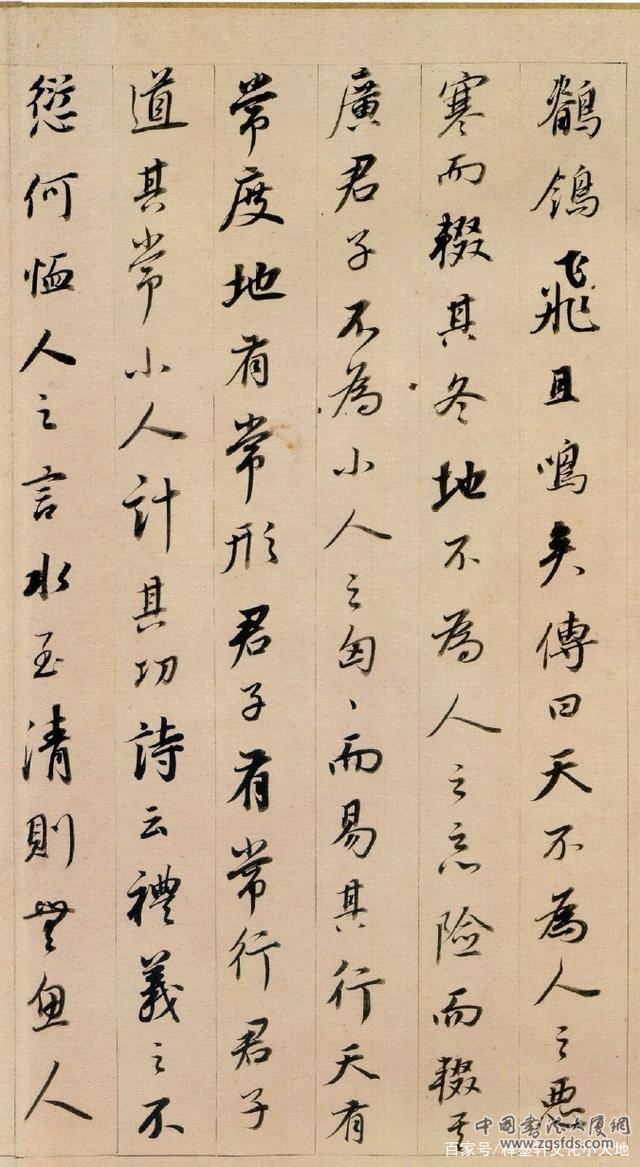 鶺鴒飛且鳴矣傳曰天不為人之惡
寒而輟其冬地不為人之惡險而輟其
廣君子不為小人之匈、而易其行天有
常度地有常形君子有常行君子
道其常小人計其功詩云禮義之不
愆何恤人之言水至清則無魚人
中國書法大厦網
百家号/释墨轩文化小天地
www.zgsfds.com